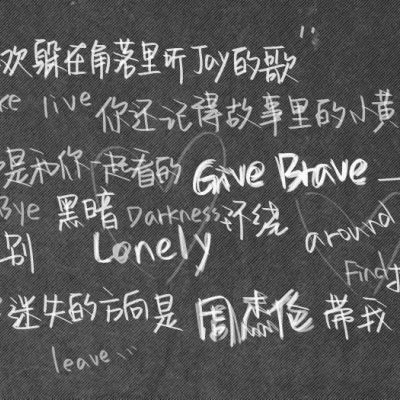 欢躲在角落里听Jay的歌"
ke live 你还记得故事里的小黄
是和你一起看的 Give Brave
Bye 黑暗 Darkness 环绕 around
别 Lonely
Find
迷失的方向是 周杰伦 带我
leave...